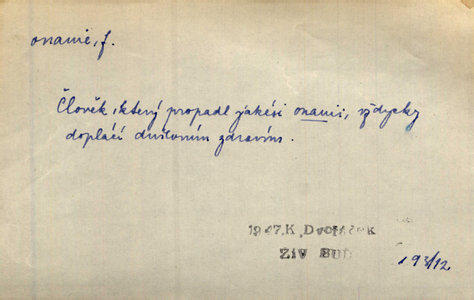 onanie, f.
Člověk, který propadl jakési onanii, vždycky
doplácí duševním zdravím.
1947.K.Dvořáček
ŽIV BUĎ
193/12